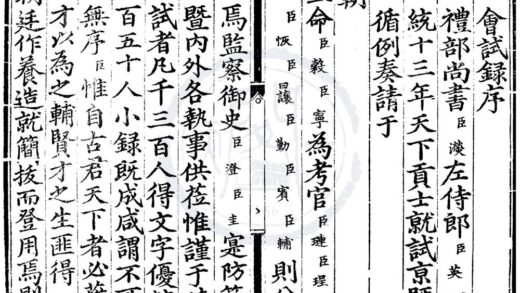 會試錄序
禮部尚書臣濙左侍郎臣英
統十三年天下貢士就試京
循例奏請于
朝
命臣穀臣寧為考官臣璉臣珵
臣恢臣讓臣勤臣賓臣輔則
焉監察御史臣澄臣圭寔防
暨內外各執事供莅惟謹于
試者凡千三百人得文字優
百五十人小錄既成咸謂不
無序臣惟自古君天下者必
才以為之輔賢才之生匪得
廷作養造就簡拔而登用焉則